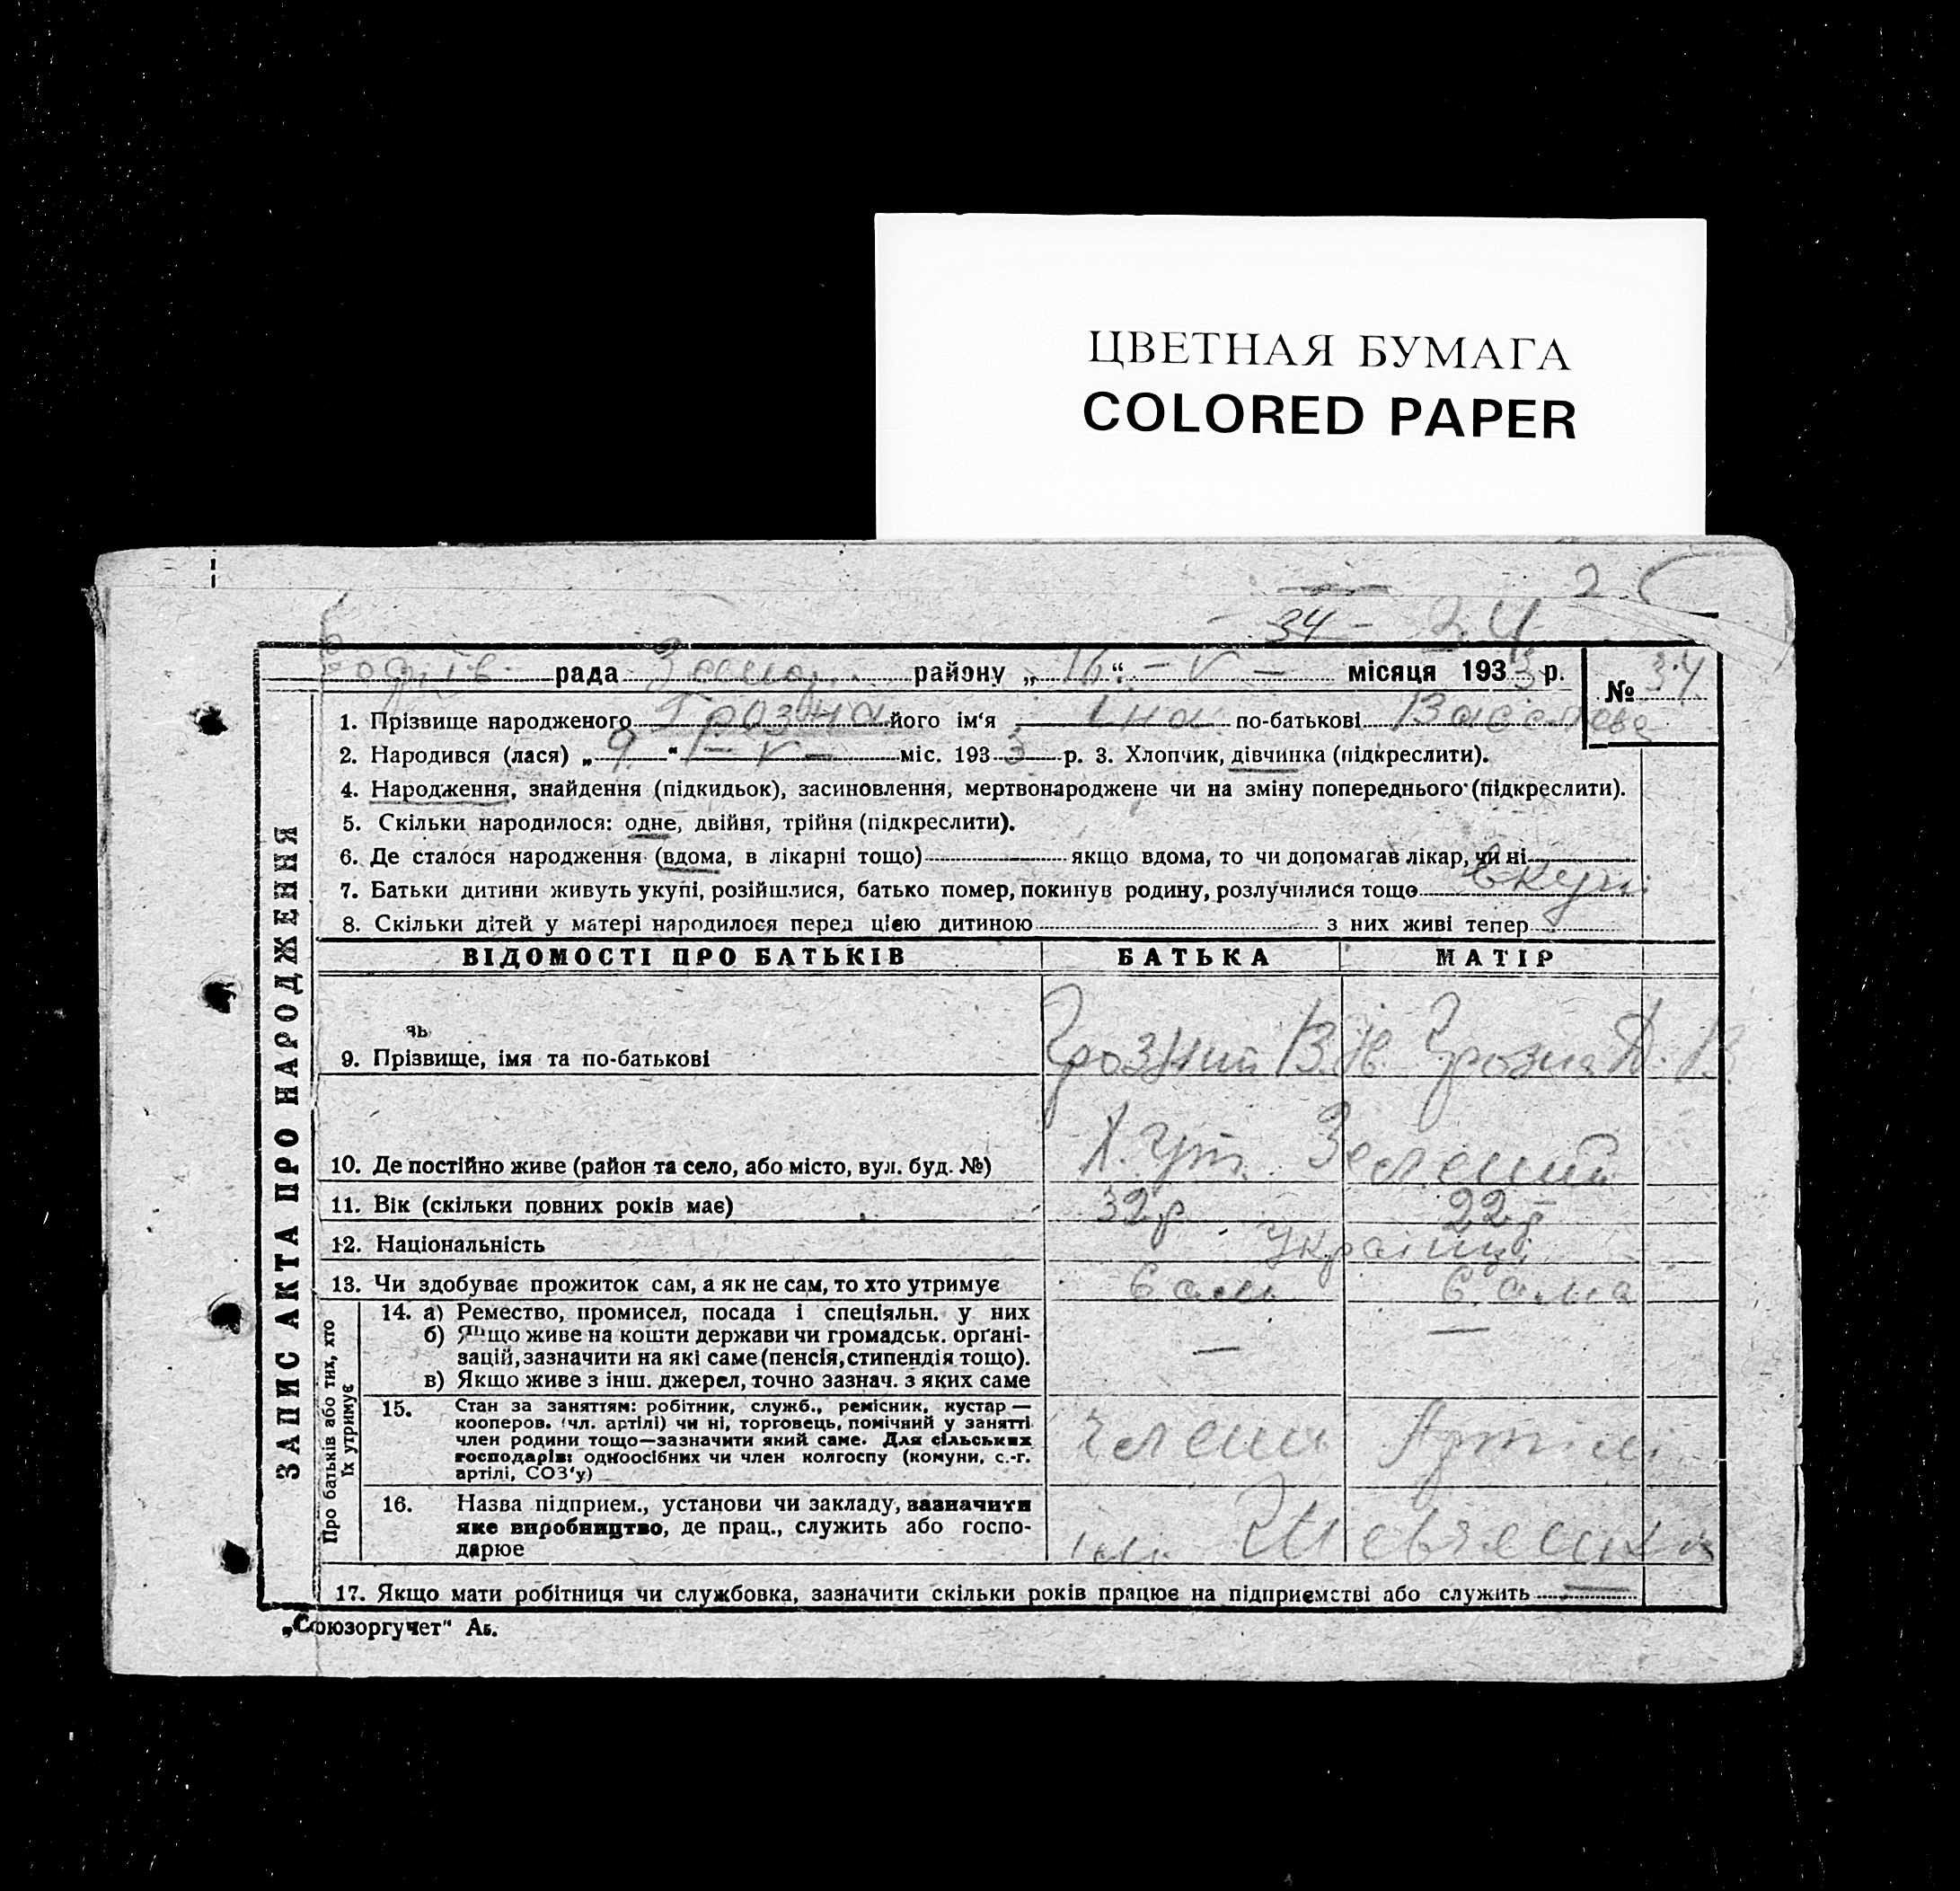 ЦВЕТНАЯ БУМАГА
COLORED PAPER
25
34 24
рада района „ 16 “ – V – місяця 1933 р.
№ 34
1. Прізвище народженого Грозна його ім'я Іна по-батькові Василева
2. Народився (лася) „ 9 “ – V – міс. 1933 р. 3. Хлопчик, дівчинка (підкреслити).
4. Народження, знайдення (підкидьок), засиновлення, мертвонароджене чи на зміну попереднього (підкреслити).
5. Скільки народилося: одне, двійня, трійня (підкреслити).
6. Де сталося народження (вдома, в лікарні тощо) якщо вдома, то чи допомагав лікар, чи ні
7. Батьки дитини живуть укупі, розійшлися, батько помер, покинув родину, розлучилися тощо вкупі
8. Скільки дітей у матері народилося перед цією дитиною з них живі тепер
ЗАПИС АКТА ПРО НАРОДЖЕННЯ
ВІДОМОСТІ ПРО БАТЬКІВ БАТЬКА МАТІР
9. Прізвище, імя та по-батькові Грозний В. Грозна В.
10. Де постійно живе (район та село, або місто, вул. буд. №) Хут. Зелений
11. Вік (скільки повних років має) 32 р 22 р
12. Національність Українці
13. Чи здобуває прожиток сам, а як не сам, то хто утримує Сам Сама
Про батьків або тих, хто їх утримує
14. а) Ремество, промисел, посада і спеціяльн. у них — —
б) Якщо живе на кошти держави чи громадськ. орґані-
зацій, зазначити на які саме (пенсія, стипендія тощо).
в) Якщо живе з інш. джерел, точно зазнач. з яких саме
15. Стан за заняттям: робітник, служб., ремісник, кустар —
кооперов. (чл. артілі) чи ні, торговець, помічний у занятті
член родини тощо—зазначити який саме. Для сільських
господарів: одноосібних чи член колгоспу (комуни, с.-г.
артілі, СОЗ'у)
члени Артілі
16. Назва підприєм., установи чи закладу, зазначити
яке виробництво, де прац., служить або госпо-
дарює
ім. Шевченка
17. Якщо мати робітниця чи службовка, зазначити скільки років працює на підприємстві або служить —
„Союзоргучет“ Аб.